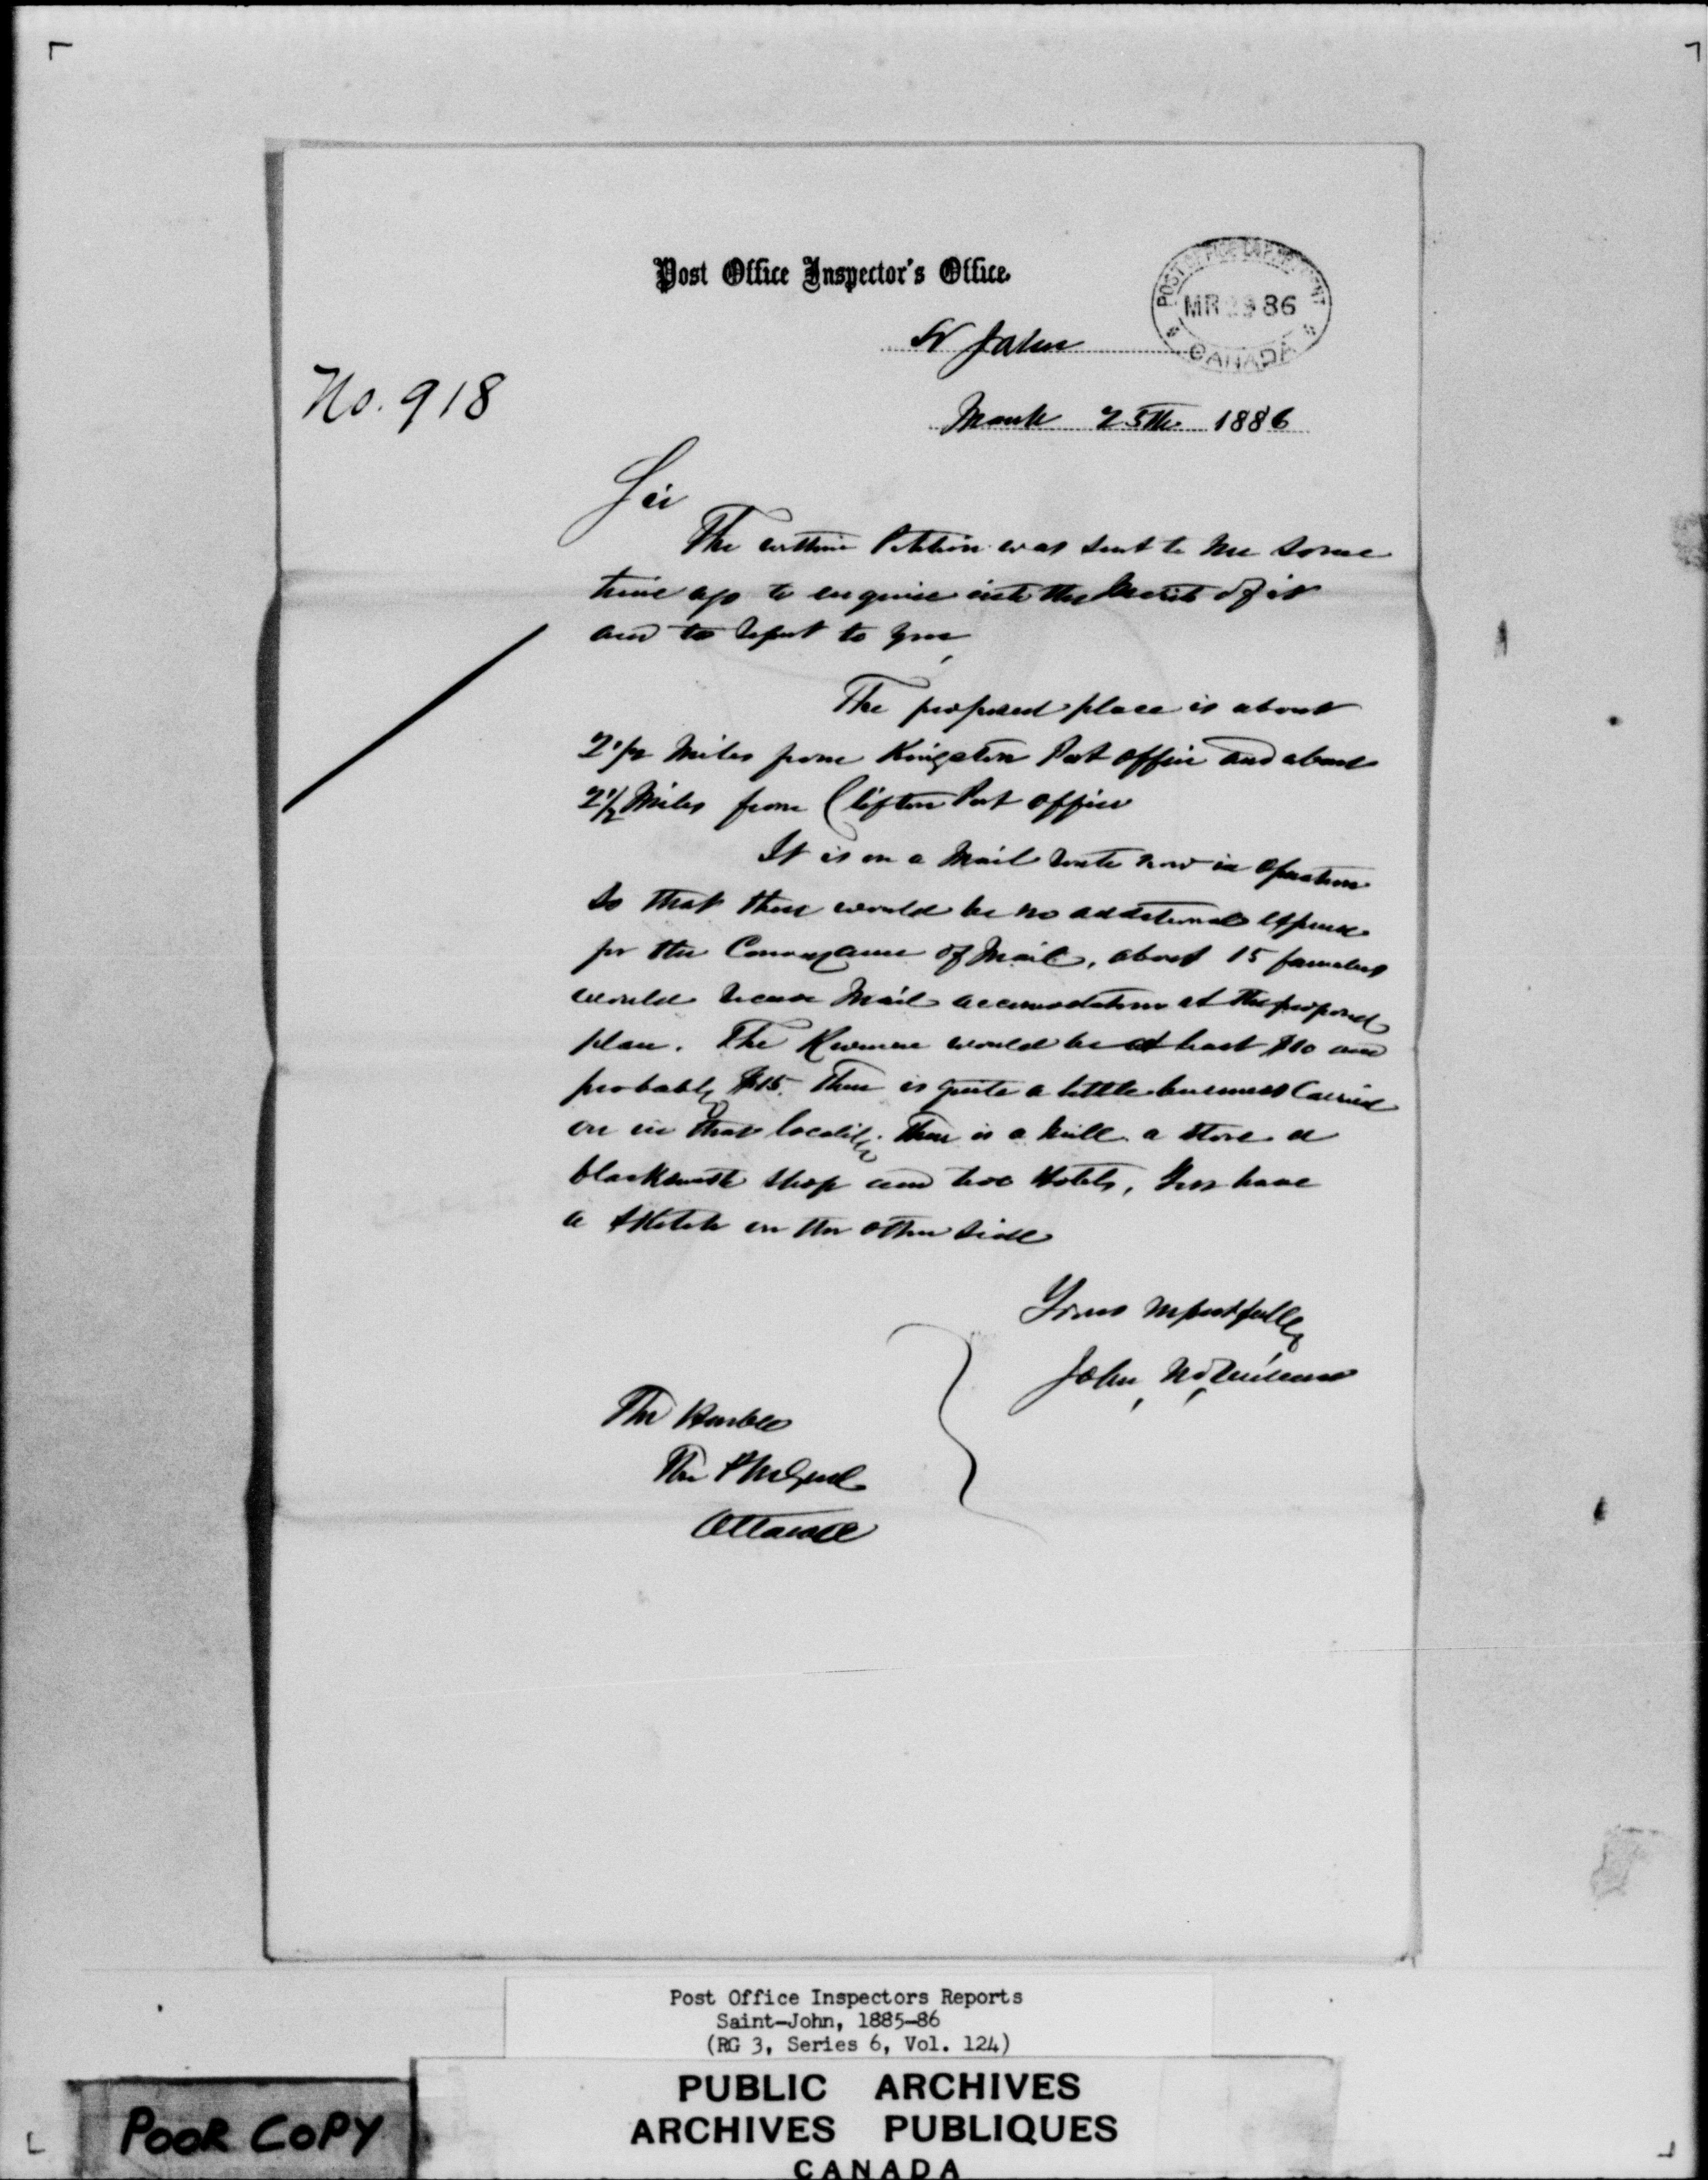 Post Office Inspector's Office
POST OFFICE DEPARTMENT
MR 29 86
CANADA
St John
No. 918
March 25th 1886
Sir
The within Petition was sent to me some
time ago to enquire into the Merits of it
and to report to you,
The proposed place is about
2 1/2 Miles from Kingston Post office and about
2 1/2 Miles from Clifton Post office
It is on a Mail route now in operation
so that there would be no additional expense
for the Conveyance of Mail, about 15 families
would receive Mail accomodation at the proposed
place. The Revenue would be at least $10 and
probably $15. There is quite a little business Carried
on in that locality. There is a Mill a store a
blacksmith shop and two Hotels, You have
a sketch on the other side
Yours respectfully
John
The Honble
The PMGenl
Ottawa
Post Office Inspectors Reports
Saint-John, 1885-86
(RG 3, Series 6, Vol. 124)
PUBLIC ARCHIVES
ARCHIVES PUBLIQUES
CANADA
POOR COPY